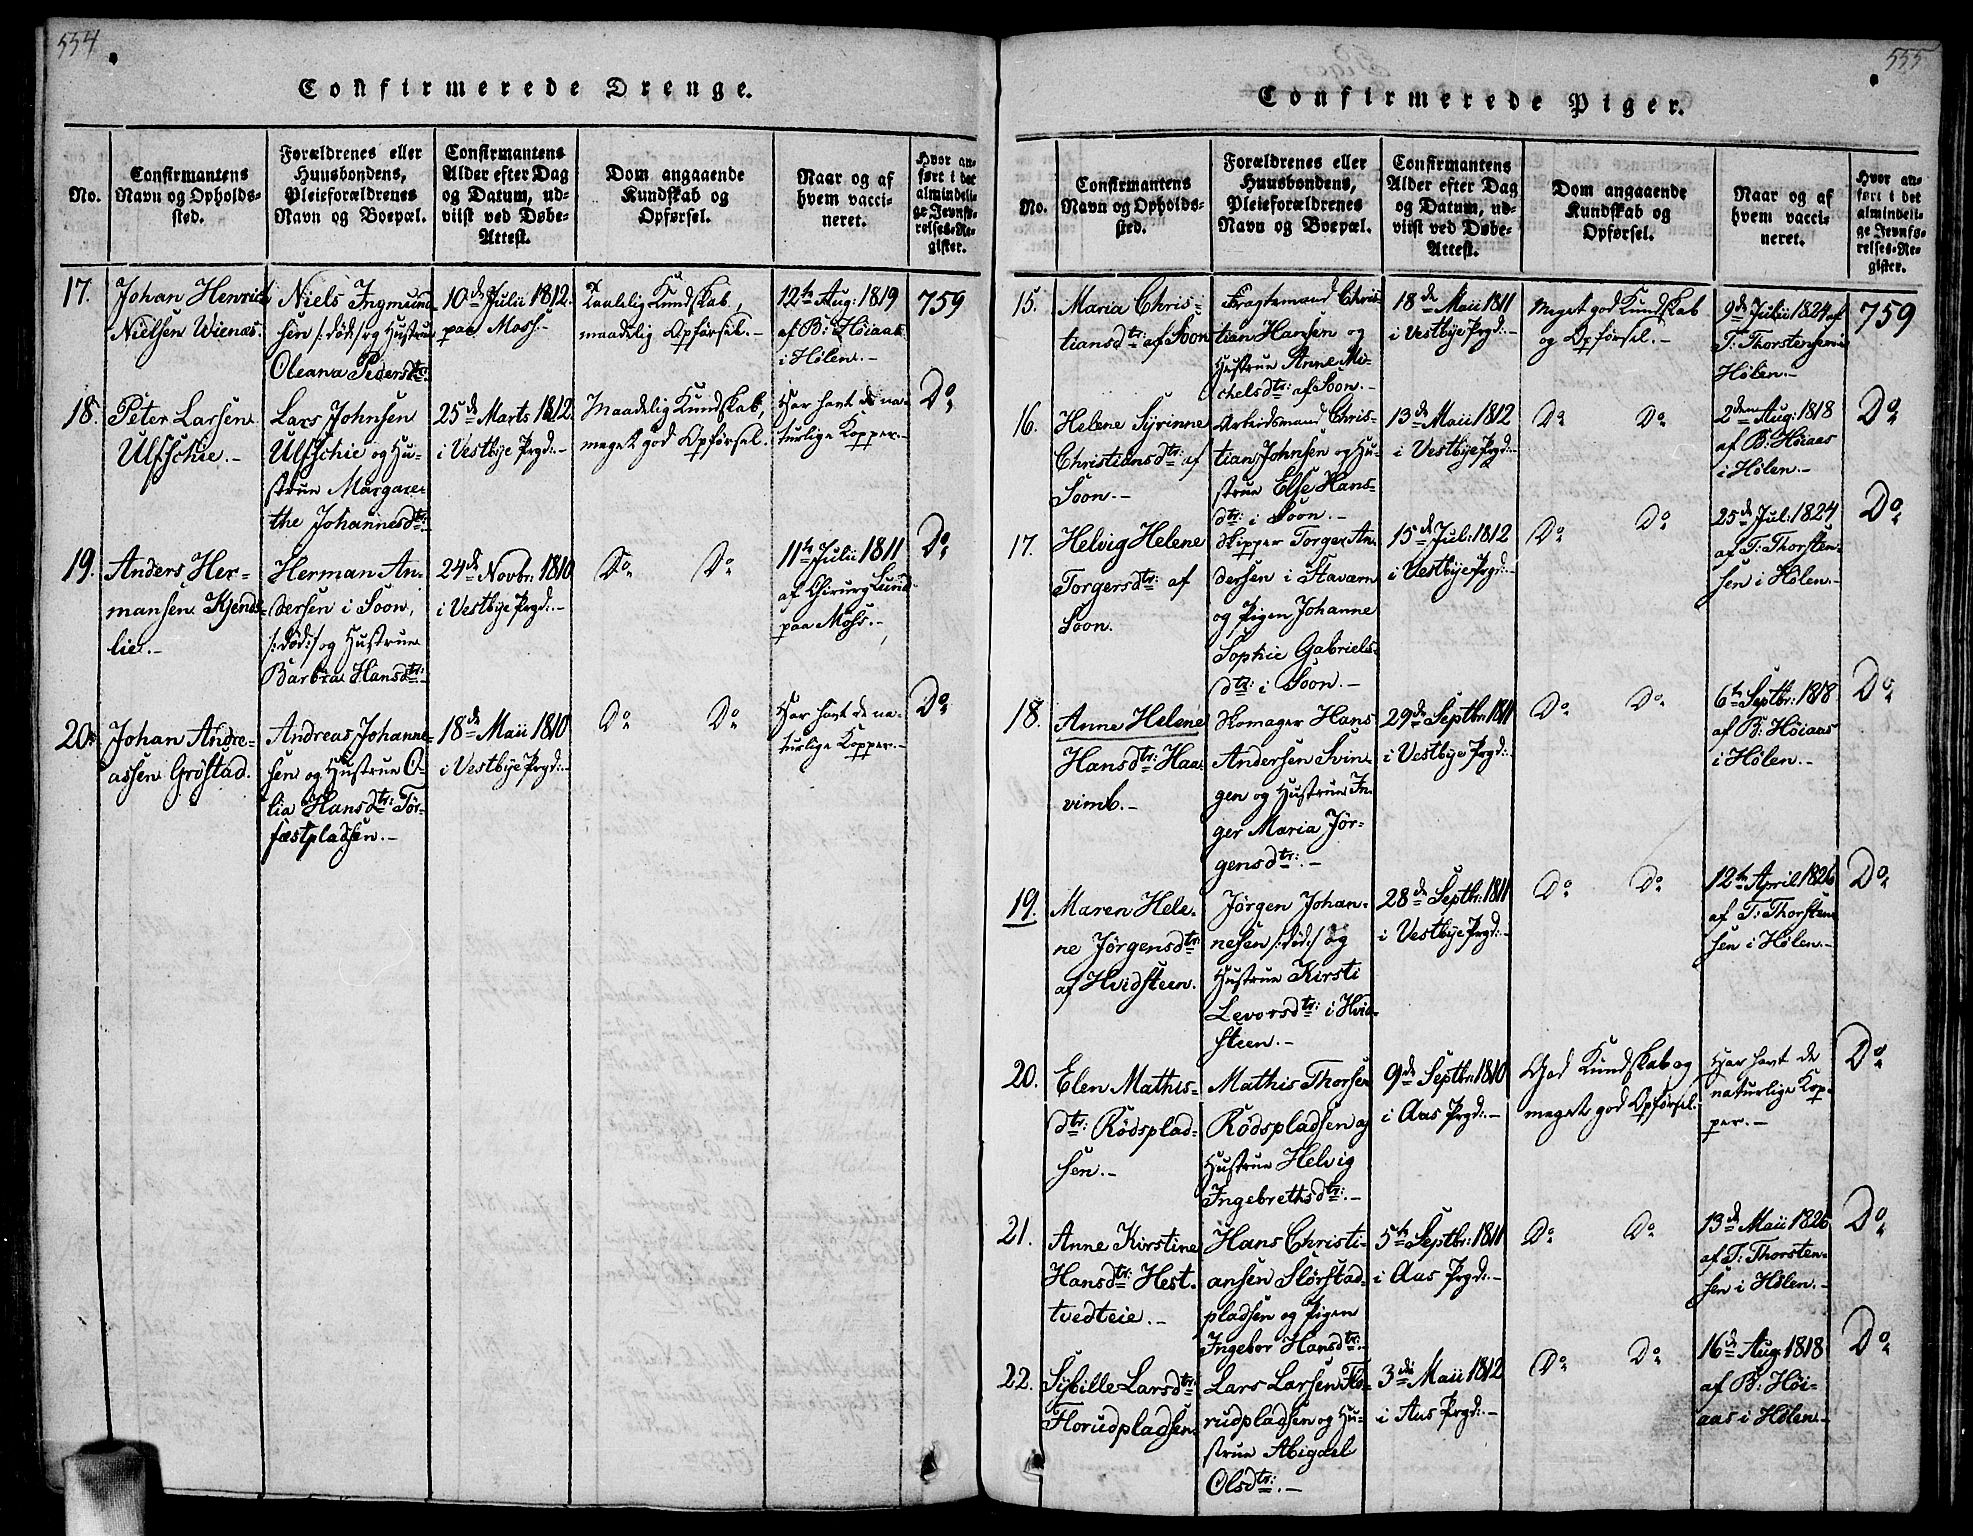 554
Confirmerede Drenge.
No.
Confirmantens
Navn og Opholds-
sted.
Forældrenes eller
Huusbondens,
Pleieforældrenes
Navn og Boepæl.
Confirmantens
Alder efter Dag
og Datum, ud-
viist ved Døbe-
Attest.
Dom angaaende
Kundskab og
Opførsel.
Naar og af
hvem vacci-
neret.
Hvor an-
ført i det
almindeli-
ge Jevnfø-
relses-Re-
gister.
17.
Johan Henrich
Nielsen Wienæs.
Niels Ingmund-
sen /:død:/ og Hustrue
Oleana Pedersdtr.
10de Julii 1812.
paa Moss.-
Taalelig Kundskab,
maadelig Opførsel.-
12te Aug: 1819
af B: Höiaas
i Hølen.-
759
18.
Peter Larsen
Ulfschie.-
Lars Johnsen
Ulfschie og Hu-
strue Margare-
the Johannesdtr:
25de Marts 1812.
i Vestbye Prgd:-
Maadelig Kundskab,
meget god Opførsel.-
Har havt de na-
turlige Kopper.-
Do
19.
Anders Her-
mansen Kjends-
lie.-
Herman An-
dersen i Soon,
/:død:/ og Hustrue
Barbra Hansdtr:
24de Novbr: 1810
i Vestbye Prgd:-
Do Do
11te Julii 1811
af Chirurg Lund
paa Moss.-
Do
20.
Johan Andre-
assen Grøstad.
Andreas Johanne-
sen og Hustrue O-
lia Hansdtr: Tør-
fæstpladsen.-
18de Maii 1810
i Vestbye Prgd:-
Do Do
Har havt de na-
turlige Kopper.-
Do
555
Piger
Confirmerede Piger.
No.
Confirmantens
Navn og Opholds-
sted.
Forældrenes eller
Huusbondens,
Pleieforældrenes
Navn og Boepæl.
Confirmantens
Alder efter Dag
og Datum, ud-
viist ved Døbe-
Attest.
Dom angaaende
Kundskab og
Opførsel.
Naar og af
hvem vacci-
neret.
Hvor an-
ført i det
almindeli-
ge Jevnfø-
relses-Re-
gister.
15.
Maria Chris-
tiansdtr: af Soon
Fragtemand Chris-
tian Hansen og
Hustrue Anne Mi-
chelsdtr: af Soon.-
18de Maii 1811
i Vestbye Prgd:-
Meget god Kundskab
og Opførsel.-
9de Julii 1824 af
T: Thorstensen i
Hølen.-
759
16.
Helene Syrinne
Christiansdtr: af
Soon.-
Arbeidsmand Chris-
tian Johnsen og Hu-
strue Else Hans-
dtr: i Soon.-
13de Maii 1812
i Vestbye Prgd:-
Do Do
2den Aug: 1818
af B: Höiaas
i Hølen.-
Do
17.
Helvig Helene
Torgersdtr: af
Soon.
Skipper Torger An-
dersen i Stavern
og Pigen Johanne
Sophie Gabriels-
dtr: i Soon.-
15de Jul: 1812
i Vestbye Prgd:-
Do Do
25de Jul: 1824
af T: Thorsten-
sen i Hølen.-
Do
18.
Anne Helene
Hansdtr: Haa-
vimb.-
Skomager Hans
Andersen Svin-
gen og Hustrue In-
ger Maria Jør-
gensdtr:.-
29de Septbr: 1811
i Vestbye Prgd:-
Do Do
6te Septbr: 1818
af B: Höiaas
i Hølen.-
Do
19.
Maren Hele-
ne Jörgensdtr:
af Hvidsteen.
Jörgen Johan-
nesen /:død:/ og
Hustrue Kirsti
Levorsdtr: i Hvid-
steen.-
28de Septbr: 1811
i Vestbye Prgd:-
Do Do
12te April 1826
af T: Thorsten-
sen i Hølen.-
Do
20.
Elen Mathis-
dtr: Rödsplad-
sen.-
Mathis Thorsen
Rödspladsen og
Hustrue Helvig
Ingebrethsdtr:.-
9de Septbr: 1810
i Aas Prgd:-
God Kundskab og
meget god Opførsel.-
Har havt de
naturlige Kop-
per.-
Do
21.
Anne Kirstine
Hansdtr: Hest-
tvedteie.-
Hans Christi-
ansen Slörstad-
pladsen og Pigen
Ingebor Hansdtr:
5te Septbr: 1811
i Aas Prgd:-
Do Do
13de Maii 1826
af T: Thorsten-
sen i Hølen.-
Do
22.
Sybille Larsdtr:
Florudpladsen
Lars Larsen Flo-
rudpladsen og Hu-
strue Abigael
Olsdtr:.-
3die Maii 1812
i Aas Prgd:-
Do Do
16de Aug: 1818
af B: Höi-
aas i Hølen.-
Do